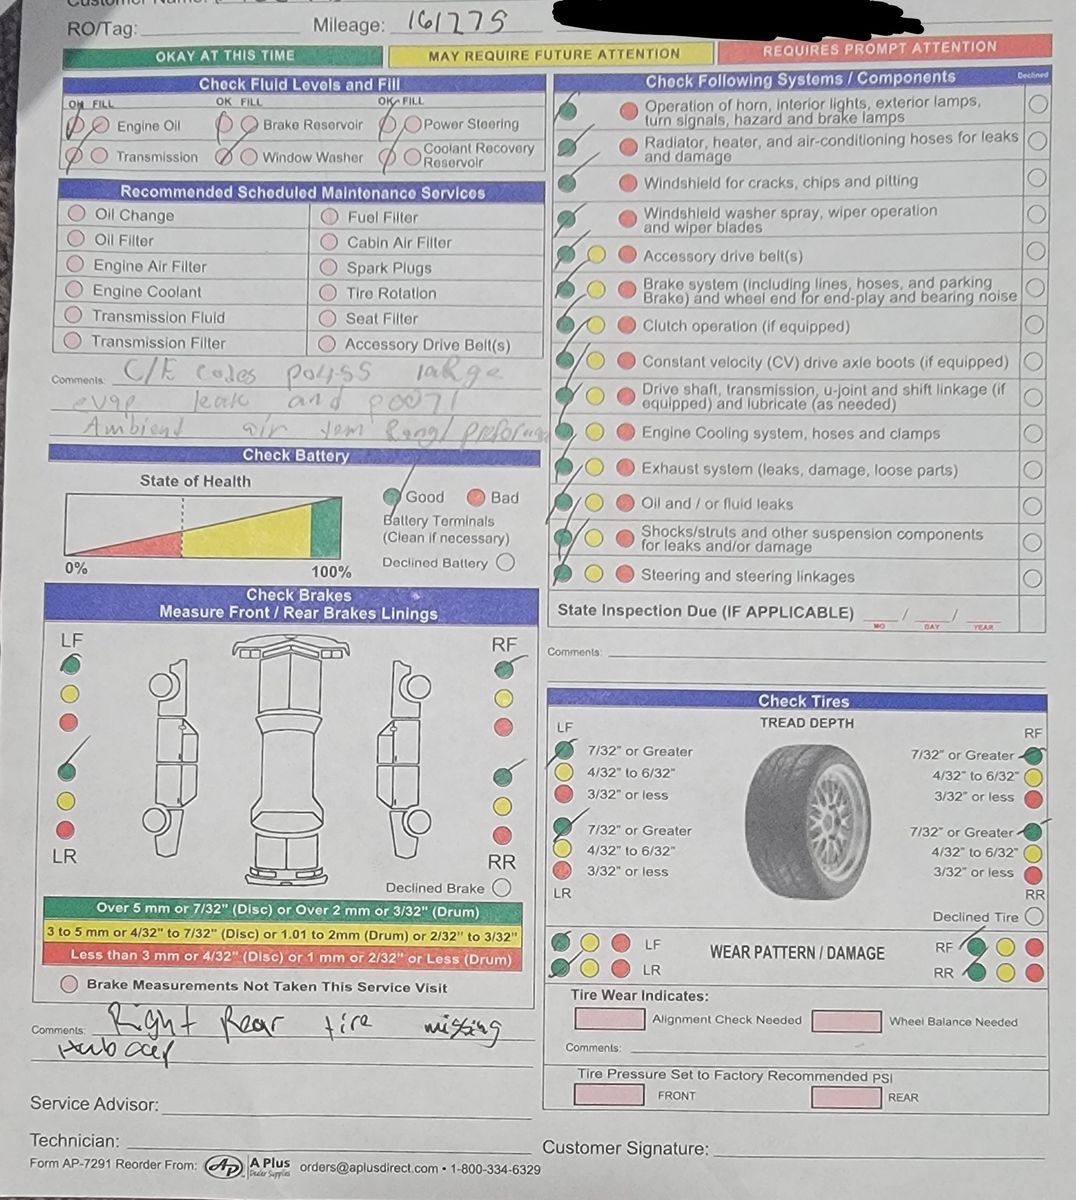 RO/Tag: Mileage: 161775
OKAY AT THIS TIME MAY REQUIRE FUTURE ATTENTION REQUIRES PROMPT ATTENTION
Check Fluid Levels and Fill
OK FILL OK FILL OK FILL
Engine Oil Brake Reservoir Power Steering
Transmission Window Washer Coolant Recovery Reservoir
Recommended Scheduled Maintenance Services
Oil Change Fuel Filter
Oil Filter Cabin Air Filter
Engine Air Filter Spark Plugs
Engine Coolant Tire Rotation
Transmission Fluid Seat Filter
Transmission Filter Accessory Drive Belt(s)
Comments: C/E codes P0455 large
evap leak and P0071
Ambient air tem Rang/
Check Battery
State of Health
0% 100%
Good Bad
Battery Terminals
(Clean if necessary)
Declined Battery
Check Brakes
Measure Front / Rear Brakes Linings
LF RF
LR RR
Declined Brake
Over 5 mm or 7/32" (Disc) or Over 2 mm or 3/32" (Drum)
3 to 5 mm or 4/32" to 7/32" (Disc) or 1.01 to 2mm (Drum) or 2/32" to 3/32"
Less than 3 mm or 4/32" (Disc) or 1 mm or 2/32" or Less (Drum)
Brake Measurements Not Taken This Service Visit
Comments: Right Rear tire missing
Hub cap
Service Advisor:
Technician:
Form AP-7291 Reorder From: AP A Plus Dealer Supplies orders@aplusdirect.com • 1-800-334-6329
Check Following Systems / Components Declined
Operation of horn, interior lights, exterior lamps,
turn signals, hazard and brake lamps
Radiator, heater, and air-conditioning hoses for leaks
and damage
Windshield for cracks, chips and pitting
Windshield washer spray, wiper operation
and wiper blades
Accessory drive belt(s)
Brake system (including lines, hoses, and parking
Brake) and wheel end for end-play and bearing noise
Clutch operation (if equipped)
Constant velocity (CV) drive axle boots (if equipped)
Drive shaft, transmission, u-joint and shift linkage (if
equipped) and lubricate (as needed)
Engine Cooling system, hoses and clamps
Exhaust system (leaks, damage, loose parts)
Oil and / or fluid leaks
Shocks/struts and other suspension components
for leaks and/or damage
Steering and steering linkages
State Inspection Due (IF APPLICABLE) / /
MO DAY YEAR
Comments:
Check Tires
LF TREAD DEPTH RF
7/32" or Greater 7/32" or Greater
4/32" to 6/32" 4/32" to 6/32"
3/32" or less 3/32" or less
7/32" or Greater 7/32" or Greater
4/32" to 6/32" 4/32" to 6/32"
3/32" or less 3/32" or less
LR RR
Declined Tire
LF WEAR PATTERN / DAMAGE RF
LR RR
Tire Wear Indicates:
Alignment Check Needed Wheel Balance Needed
Comments:
Tire Pressure Set to Factory Recommended PSI
FRONT REAR
Customer Signature: